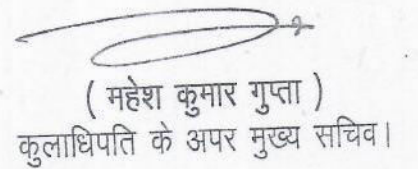 ( महेश कुमार गुप्ता )
कुलाधिपति के अपर मुख्य सचिव।